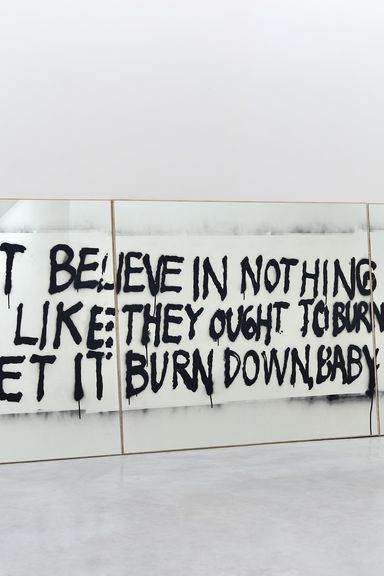 T BELIEVE IN NOTHING
LIKE THEY OUGHT TO BURN
ET IT BURN DOWN, BABY